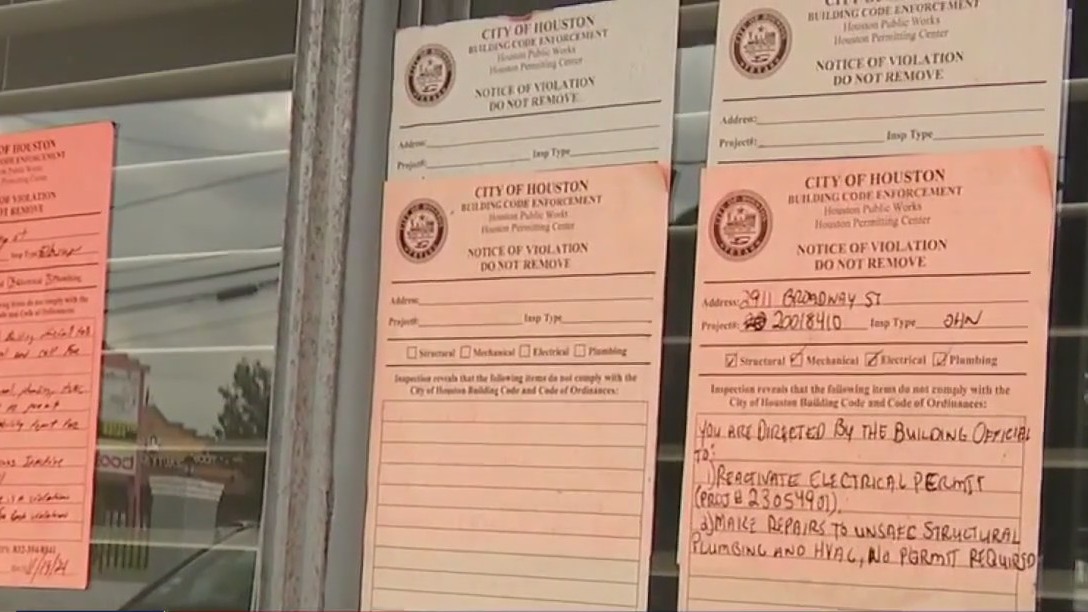 OF HOUSTON
CODE ENFORCEMENT
Public Works
Permitting Center
OF VIOLATION
NOT REMOVE
St
Insp Type
Plumbing
items do not comply with the
and Code of Ordinances:
and call for
permit
is a violation
violation
CITY OF HOUSTON
BUILDING CODE ENFORCEMENT
Houston Public Works
Houston Permitting Center
NOTICE OF VIOLATION
DO NOT REMOVE
Address:
Project#: Insp Type
CITY OF HOUSTON
BUILDING CODE ENFORCEMENT
Houston Public Works
Houston Permitting Center
NOTICE OF VIOLATION
DO NOT REMOVE
Address:
Project#: Insp Type
Structural Mechanical Electrical Plumbing
Inspection reveals that the following items do not comply with the
City of Houston Building Code and Code of Ordinances:
BUILDING CODE ENFORCEMENT
Houston Public Works
Houston Permitting Center
NOTICE OF VIOLATION
DO NOT REMOVE
Address:
Project#: Insp Type
CITY OF HOUSTON
BUILDING CODE ENFORCEMENT
Houston Public Works
Houston Permitting Center
NOTICE OF VIOLATION
DO NOT REMOVE
Address: 2911 BROADWAY ST
Project#: 20018410 Insp Type OHN
Structural Mechanical Electrical Plumbing
Inspection reveals that the following items do not comply with the
City of Houston Building Code and Code of Ordinances:
YOU ARE DIRECTED BY THE BUILDING OFFICIAL
TO:
1) REACTIVATE ELECTRICAL PERMIT
(PROJ # 23054901).
2) MAKE REPAIRS TO UNSAFE STRUCTURAL
PLUMBING AND HVAC, NO PERMIT REQUIRED